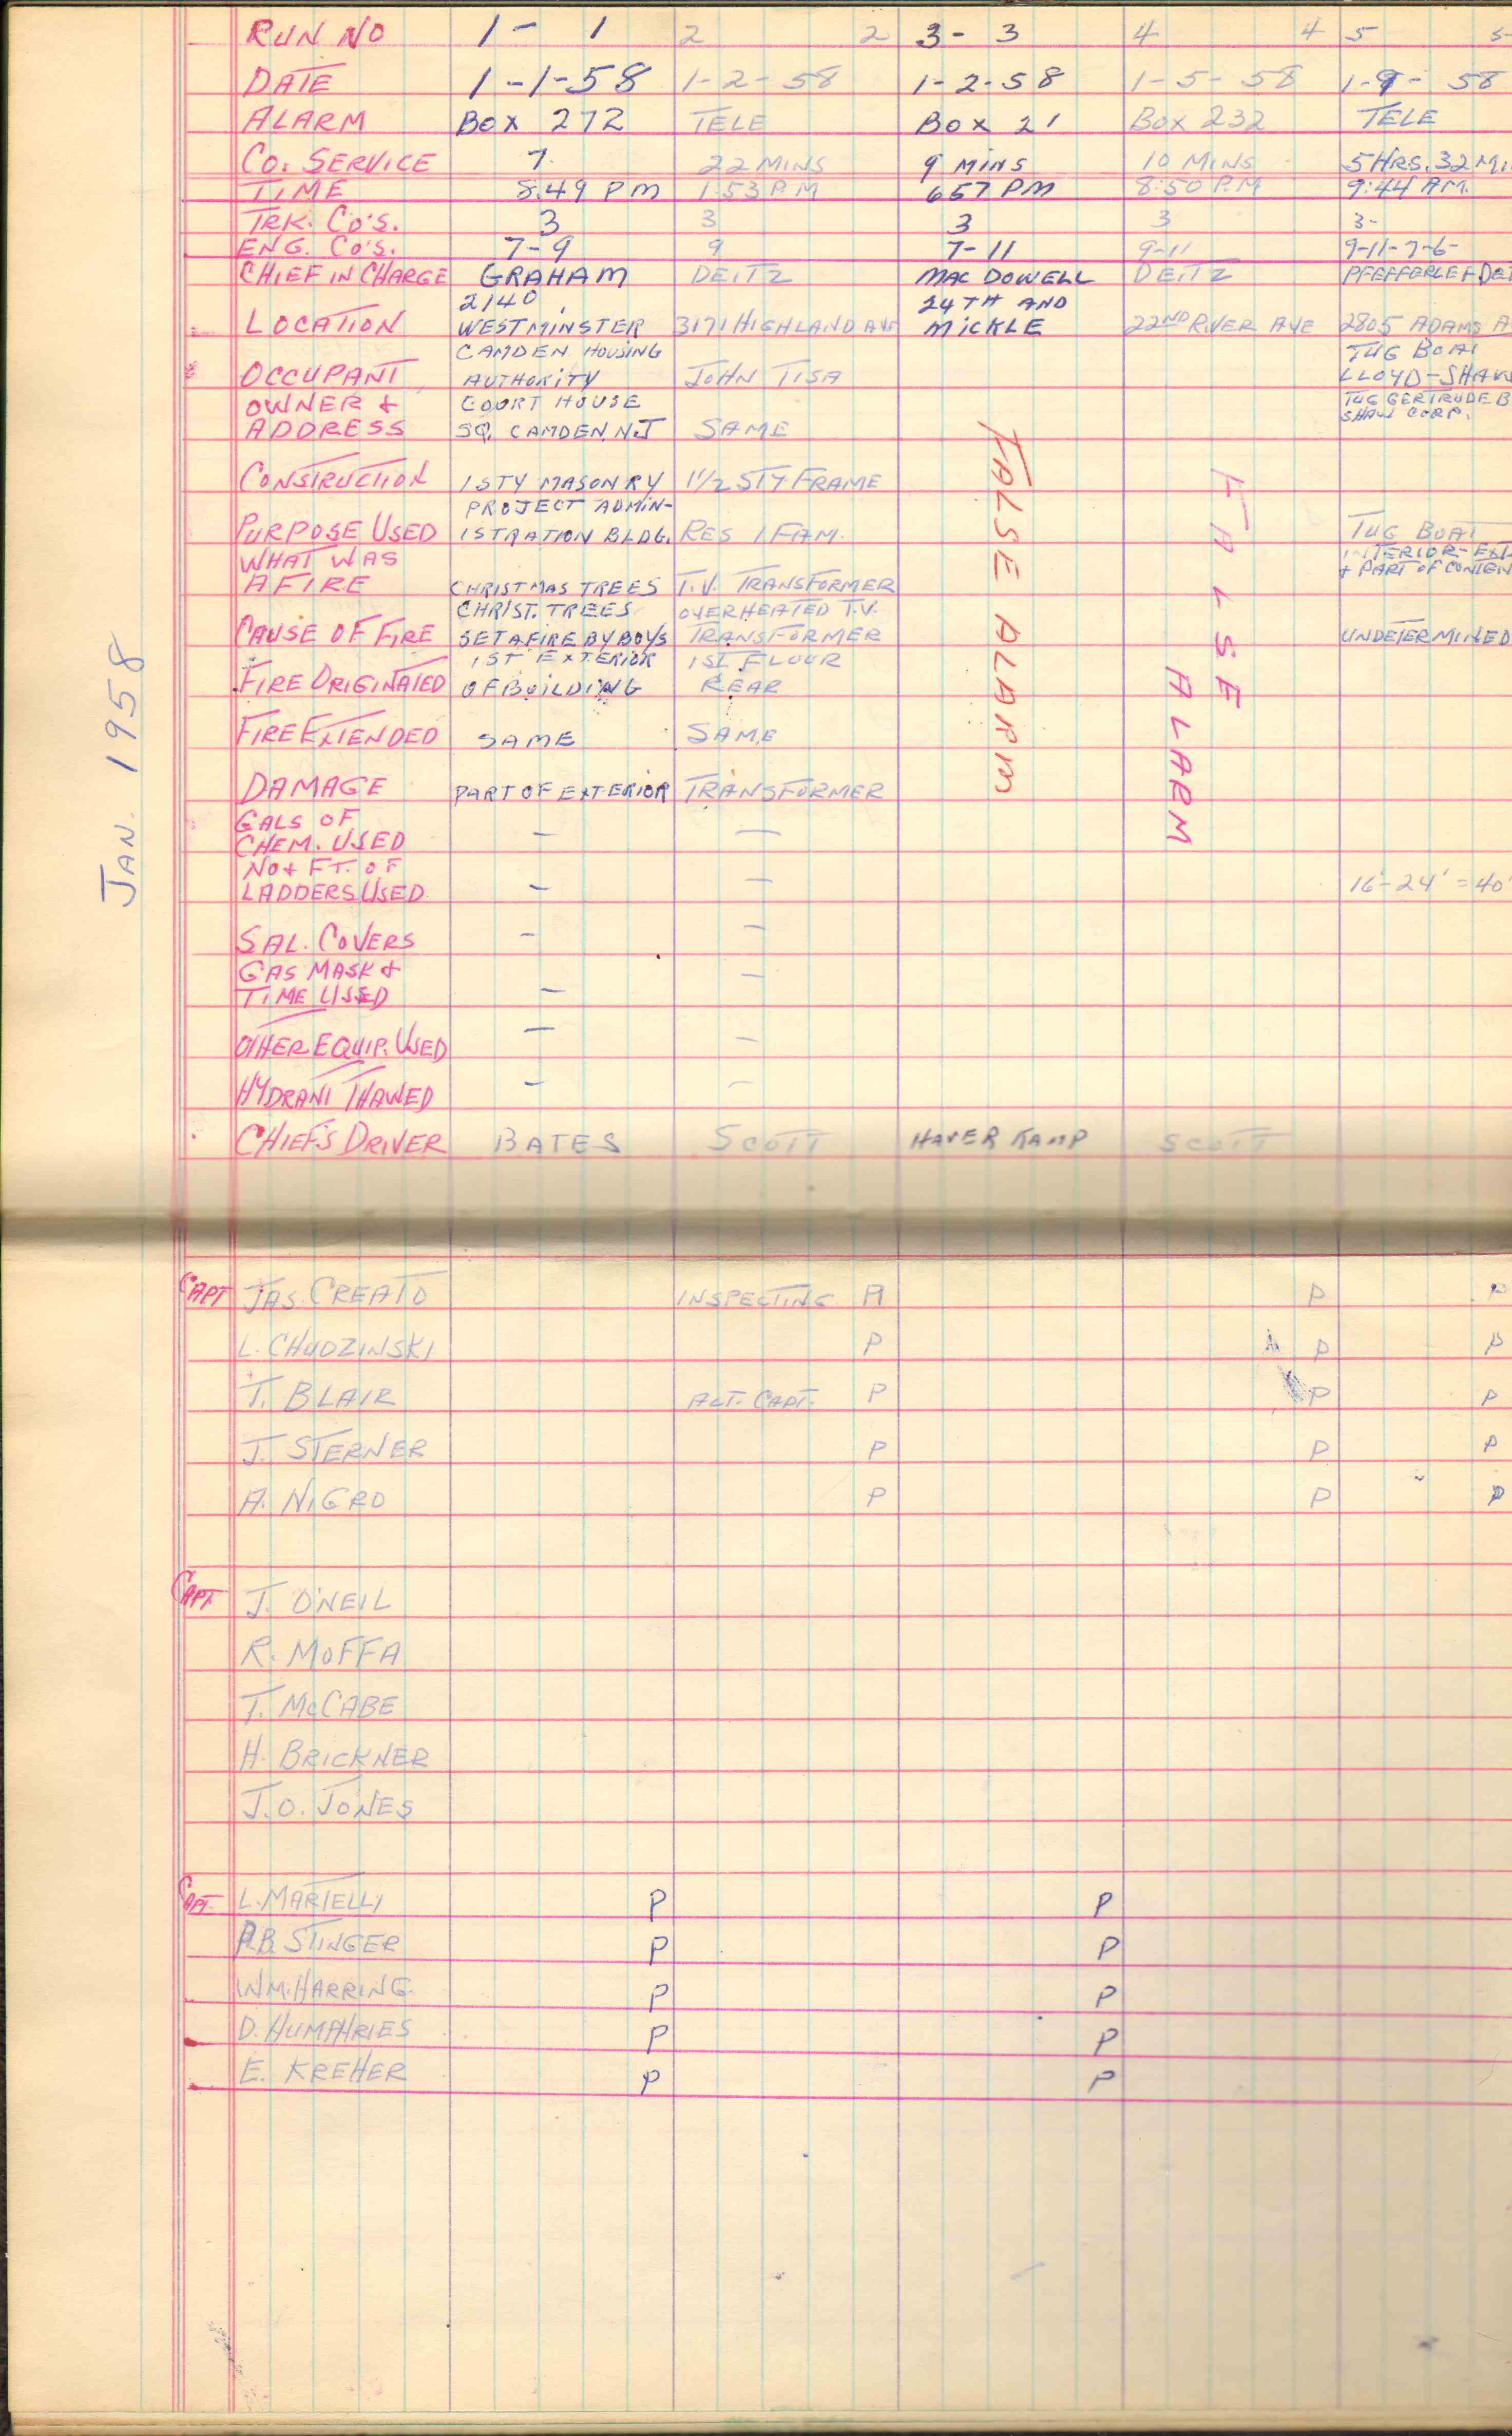 JAN. 1958
RUN NO 1- 1 2 2 3- 3 4 4 5 5-
DATE 1-1-58 1-2-58 1-2-58 1-5-58 1-9-58
ALARM BOX 272 TELE BOX 21 BOX 232 TELE
CO. SERVICE 7. 22 MINS 9 MINS 10 MINS 5 HRS. 32 MI
TIME 8:49 PM 1:53 P.M 657 PM 8:50 P.M 9:44 AM.
TRK. CO'S. 3 3 3 3 3-
ENG. CO'S. 7-9 9 7-11 9-11 9-11-7-6-
CHIEF IN CHARGE GRAHAM DEITZ MAC DOWELL DEITZ PFEFFERLE + DEI
2140 24TH AND
LOCATION WESTMINSTER 3171 HIGHLAND AVE MICKLE 22ND RIVER AVE 2805 ADAMS A
CAMDEN HOUSING TUG BOAT
OCCUPANT AUTHORITY JOHN TISA LLOYD-SHAW
OWNER + COURT HOUSE TUG GERTRUDE B
ADDRESS SQ. CAMDEN, N.J SAME SHAW CORP.
FALSE ALARM
FALSE ALARM
CONSTRUCTION 1 STY MASONRY 1 1/2 STY FRAME
PROJECT ADMIN-
PURPOSE USED ISTRATION BLDG. RES 1 FAM. TUG BOAT
WHAT WAS INTERIOR-EXT
AFIRE CHRISTMAS TREES T.V. TRANSFORMER + PART OF CONTEN
CHRIST. TREES OVERHEATED T.V.
CAUSE OF FIRE SET AFIRE BY BOYS TRANSFORMER UNDETERMINED
1ST EXTERIOR 1ST FLOOR
FIRE ORIGINATED OF BUILDING REAR
FIRE EXTENDED SAME SAME
DAMAGE PART OF EXTERIOR TRANSFORMER
GALS OF
CHEM. USED - -
NO + FT. OF
LADDERS USED - - 16'-24' = 40'
SAL. COVERS - -
GAS MASK +
TIME USED - -
OTHER EQUIP. USED - -
HYDRANT THAWED - -
CHIEF'S DRIVER BATES SCOTT HAVERKAMP SCOTT
CAPT JAS. CREATO INSPECTING A P P
L. CHUDZINSKI P P P
T. BLAIR ACT. CAPT. P P P
J. STERNER P P P
A. NIGRO P P P
CAPT J. O'NEIL
R. MOFFA
T. McCABE
H. BRICKNER
J.O. JONES
CAPT. L. MARTELLI P P
R.B. STINGER P P
WM. HARRING P P
D. HUMPHRIES P P
E. KREHER P P